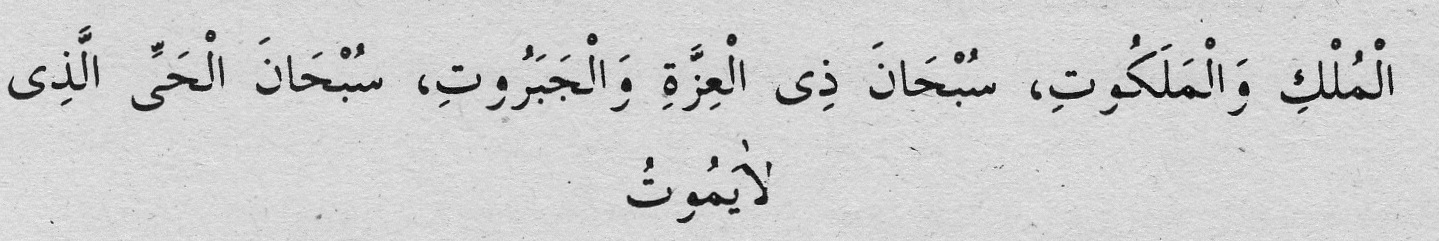 الْمُلْكِ وَالْمَلَكُوتِ، سُبْحَانَ ذِى الْعِزَّةِ وَالْجَبَرُوتِ، سُبْحَانَ الْحَىِّ الَّذِى
لاٰيَمُوتُ